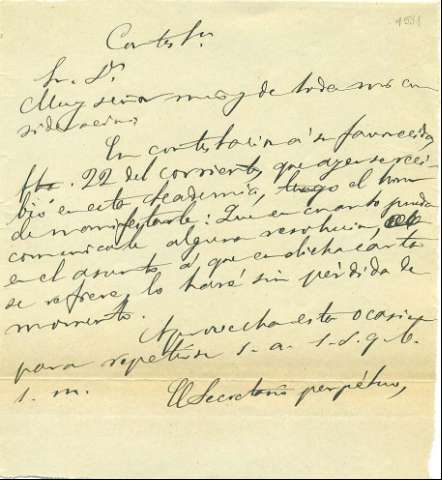 1931
Contest.n
Sr. Dn.
Muy señor mio y de toda mi con
sideracion:
En contestacion á su favorecida
fha. 22 del corriente, que ayer se reci-
bió en esta Academia, tengo el honor
de manifestarle: Que en cuanto pueda
comunicarle alguna resolucion,
en el asunto á que en dicha carta
se refiere, lo haré sin pérdida de
momento.
Aprovecha esta ocasion
para repetirse s. a. s. s. q. b.
s. m.
El Secretario perpétuo,